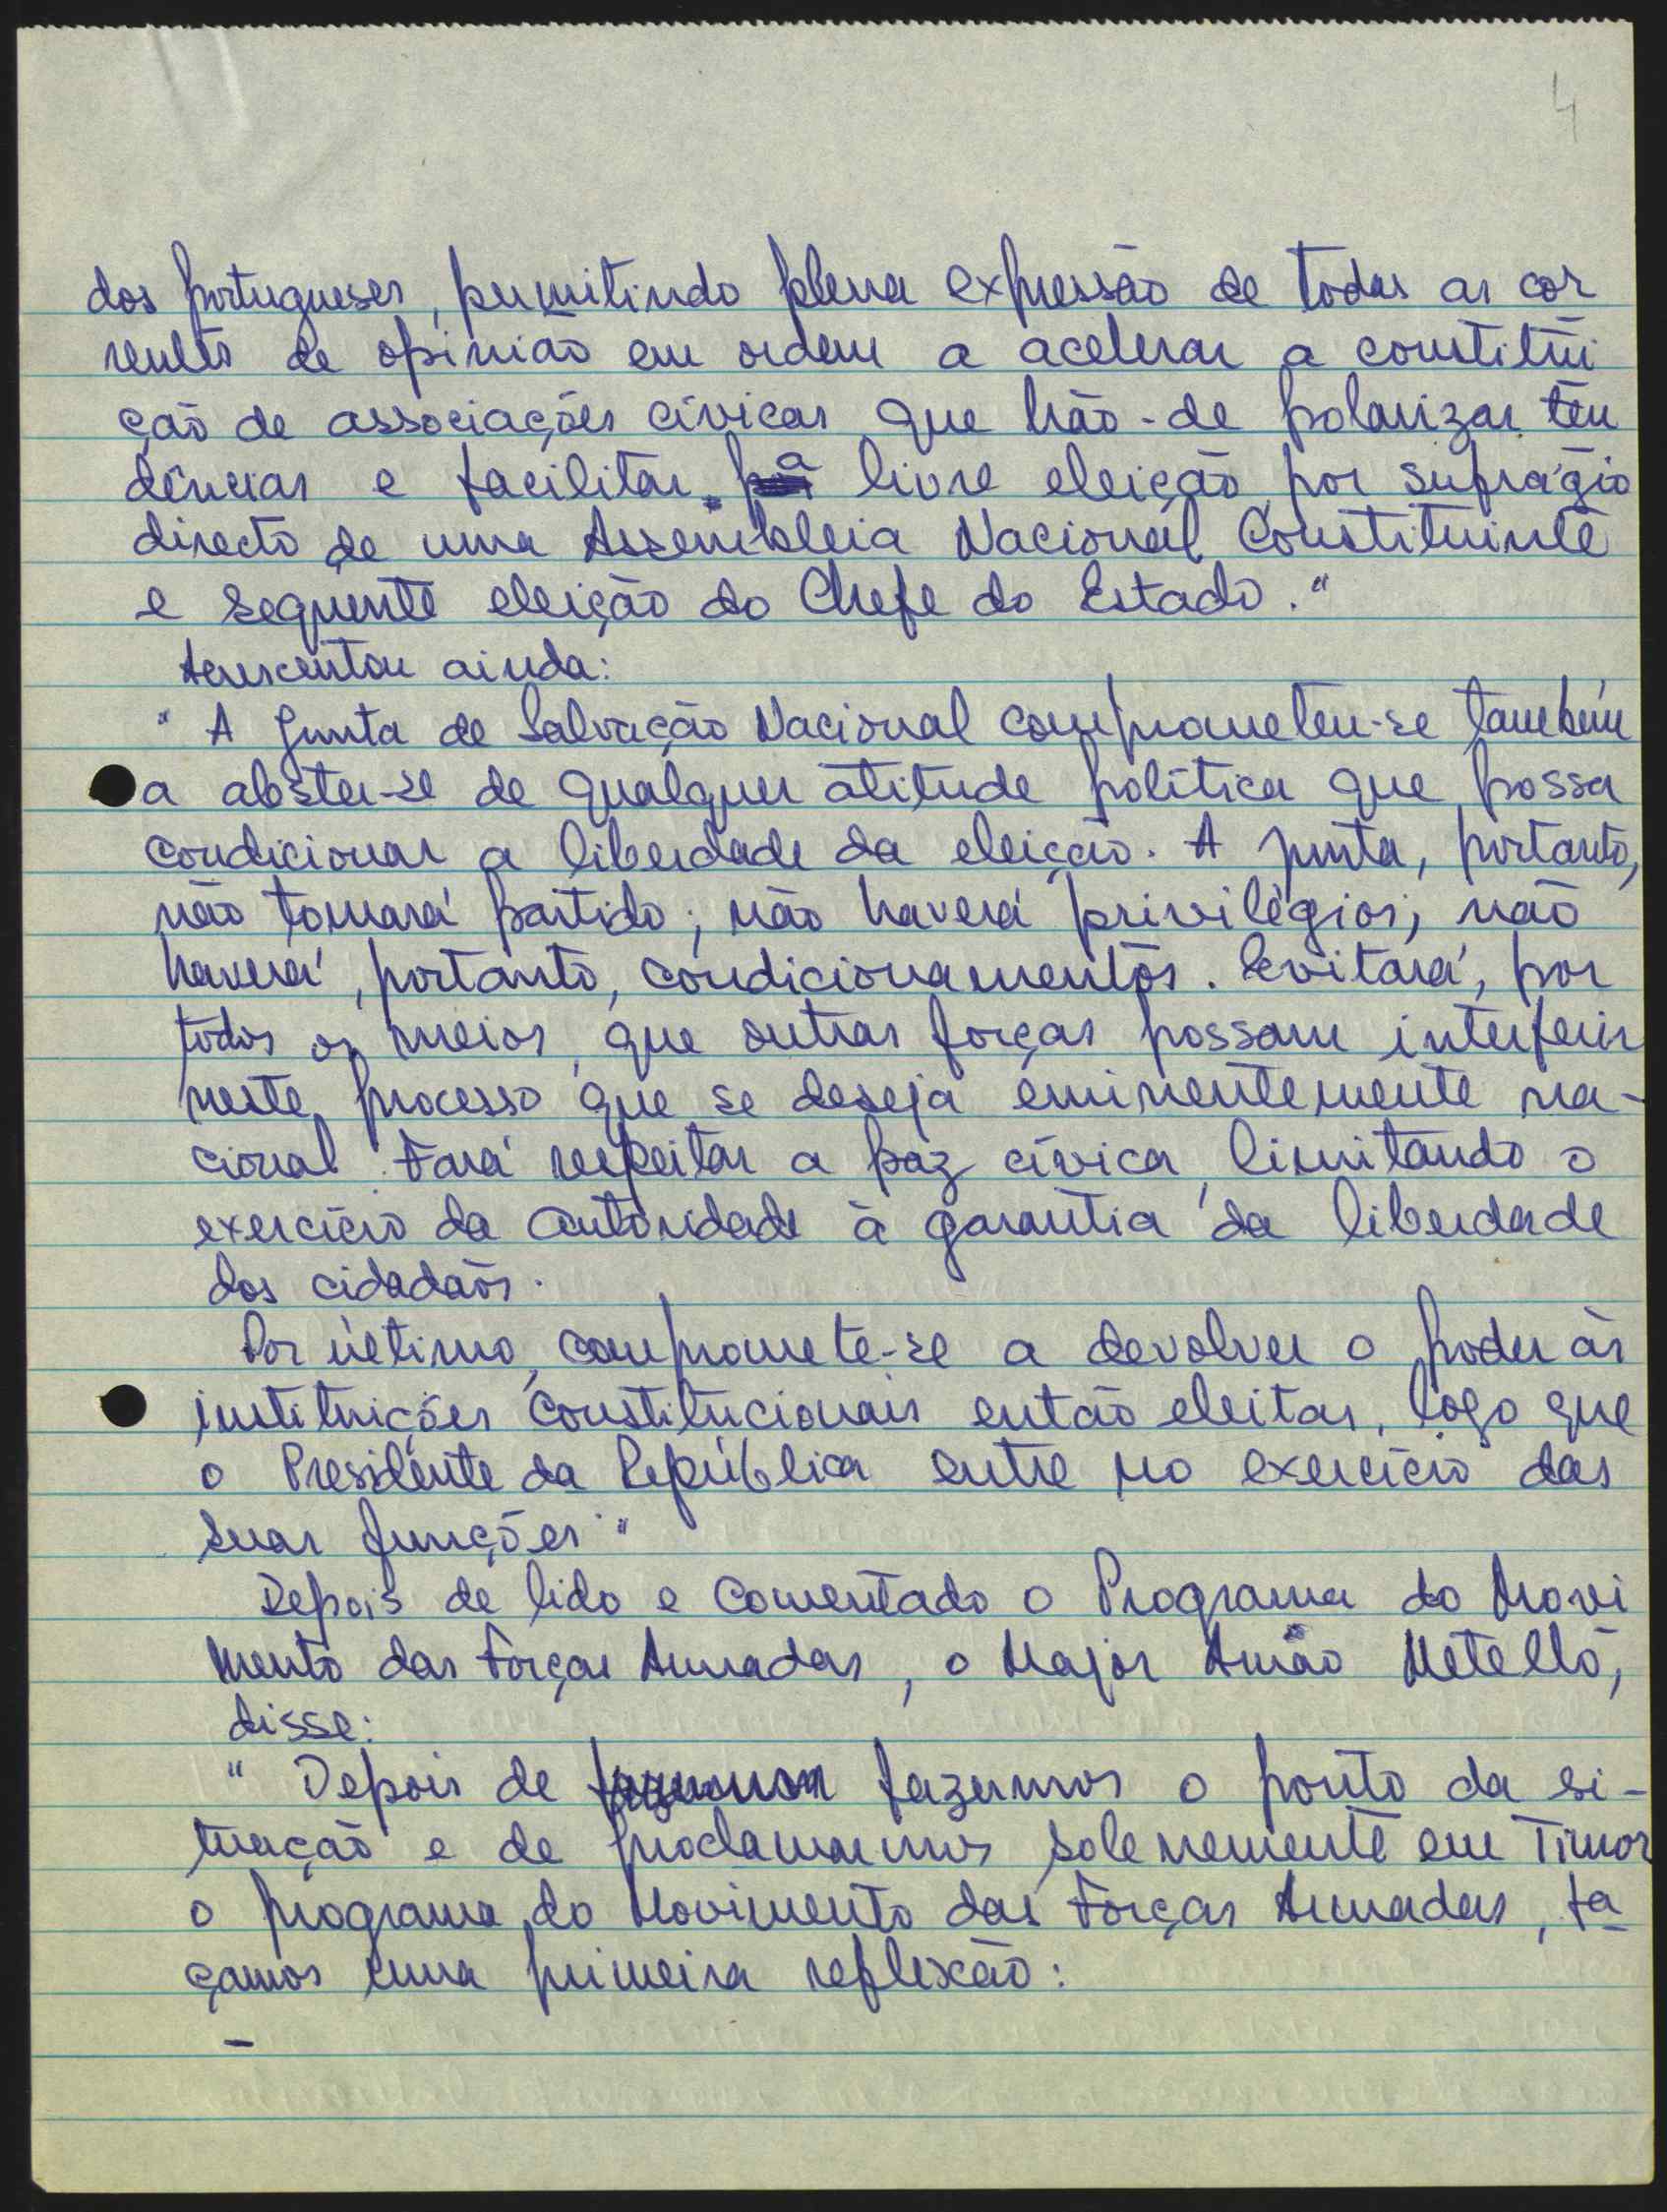 4
dos portugueses, permitindo plena expressão de todas as cor
rentes de opinião em ordem a acelerar a constitui
ção de associações cívicas que hão-de polarizar ten
dências e facilitar a livre eleição por sufrágio
directo de uma Assembleia Nacional Constituinte
e sequente eleição do Chefe do Estado."
Acrescentou ainda:
"A Junta de Salvação Nacional comprometeu-se também
a abster-se de qualquer atitude política que possa
condicionar a liberdade da eleição. A junta, portanto,
não tomará partido; não haverá privilégios; não
haverá, portanto, condicionamentos. Evitará, por
todos os meios, que outras forças possam interferir
neste processo que se deseja eminentemente na-
cional. Fará respeitar a paz cívica, limitando o
exercício da autoridade à garantia da liberdade
dos cidadãos.
Por último, compromete-se a devolver o poder às
instituições constitucionais então eleitas, logo que
o Presidente da República entre no exercício das
suas funções."
Depois de lido e comentado o Programa do Movi
mento das Forças Armadas, o Major Arnão Metello,
disse:
"Depois de fazermos o ponto da si-
tuação e de proclamarmos solenemente em Timor
o programa do Movimento das Forças Armadas, fa
çamos uma primeira reflexão:
-